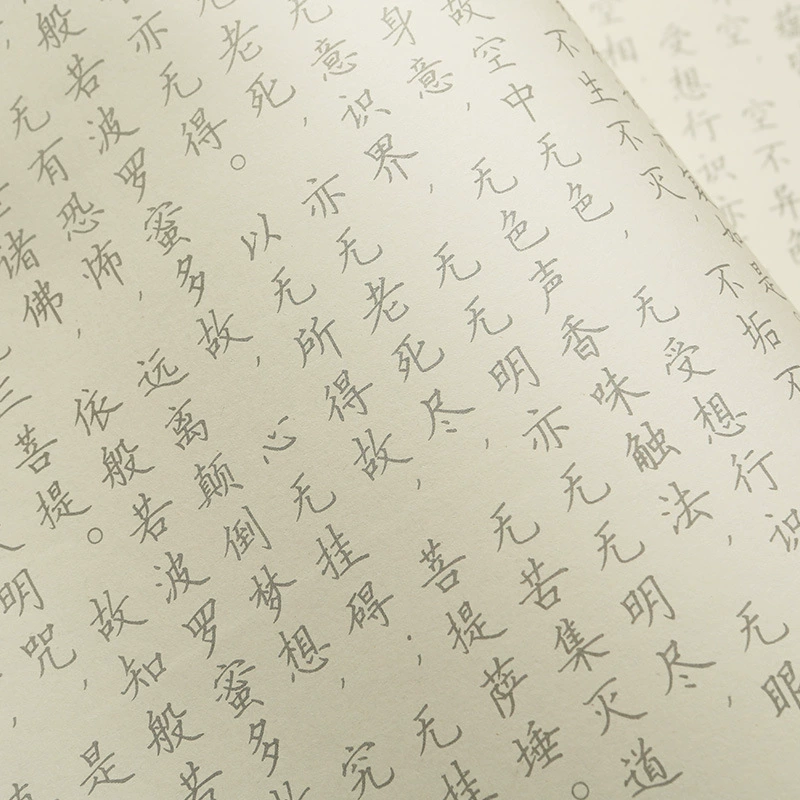 空不异色
受想行识亦
空相
不生不灭，不垢不
故空中无色，无受想行识
身意，无色声香味触法，无眼
意识界，无无明亦无无明尽，
老死，亦无老死尽，无苦集灭道
亦无得。以无所得故，菩提萨埵。
般若波罗蜜多故，心无挂碍；无挂
无有恐怖，远离颠倒梦想，究
诸佛，依般若波罗蜜多故
三菩提。故知般若
明咒，是